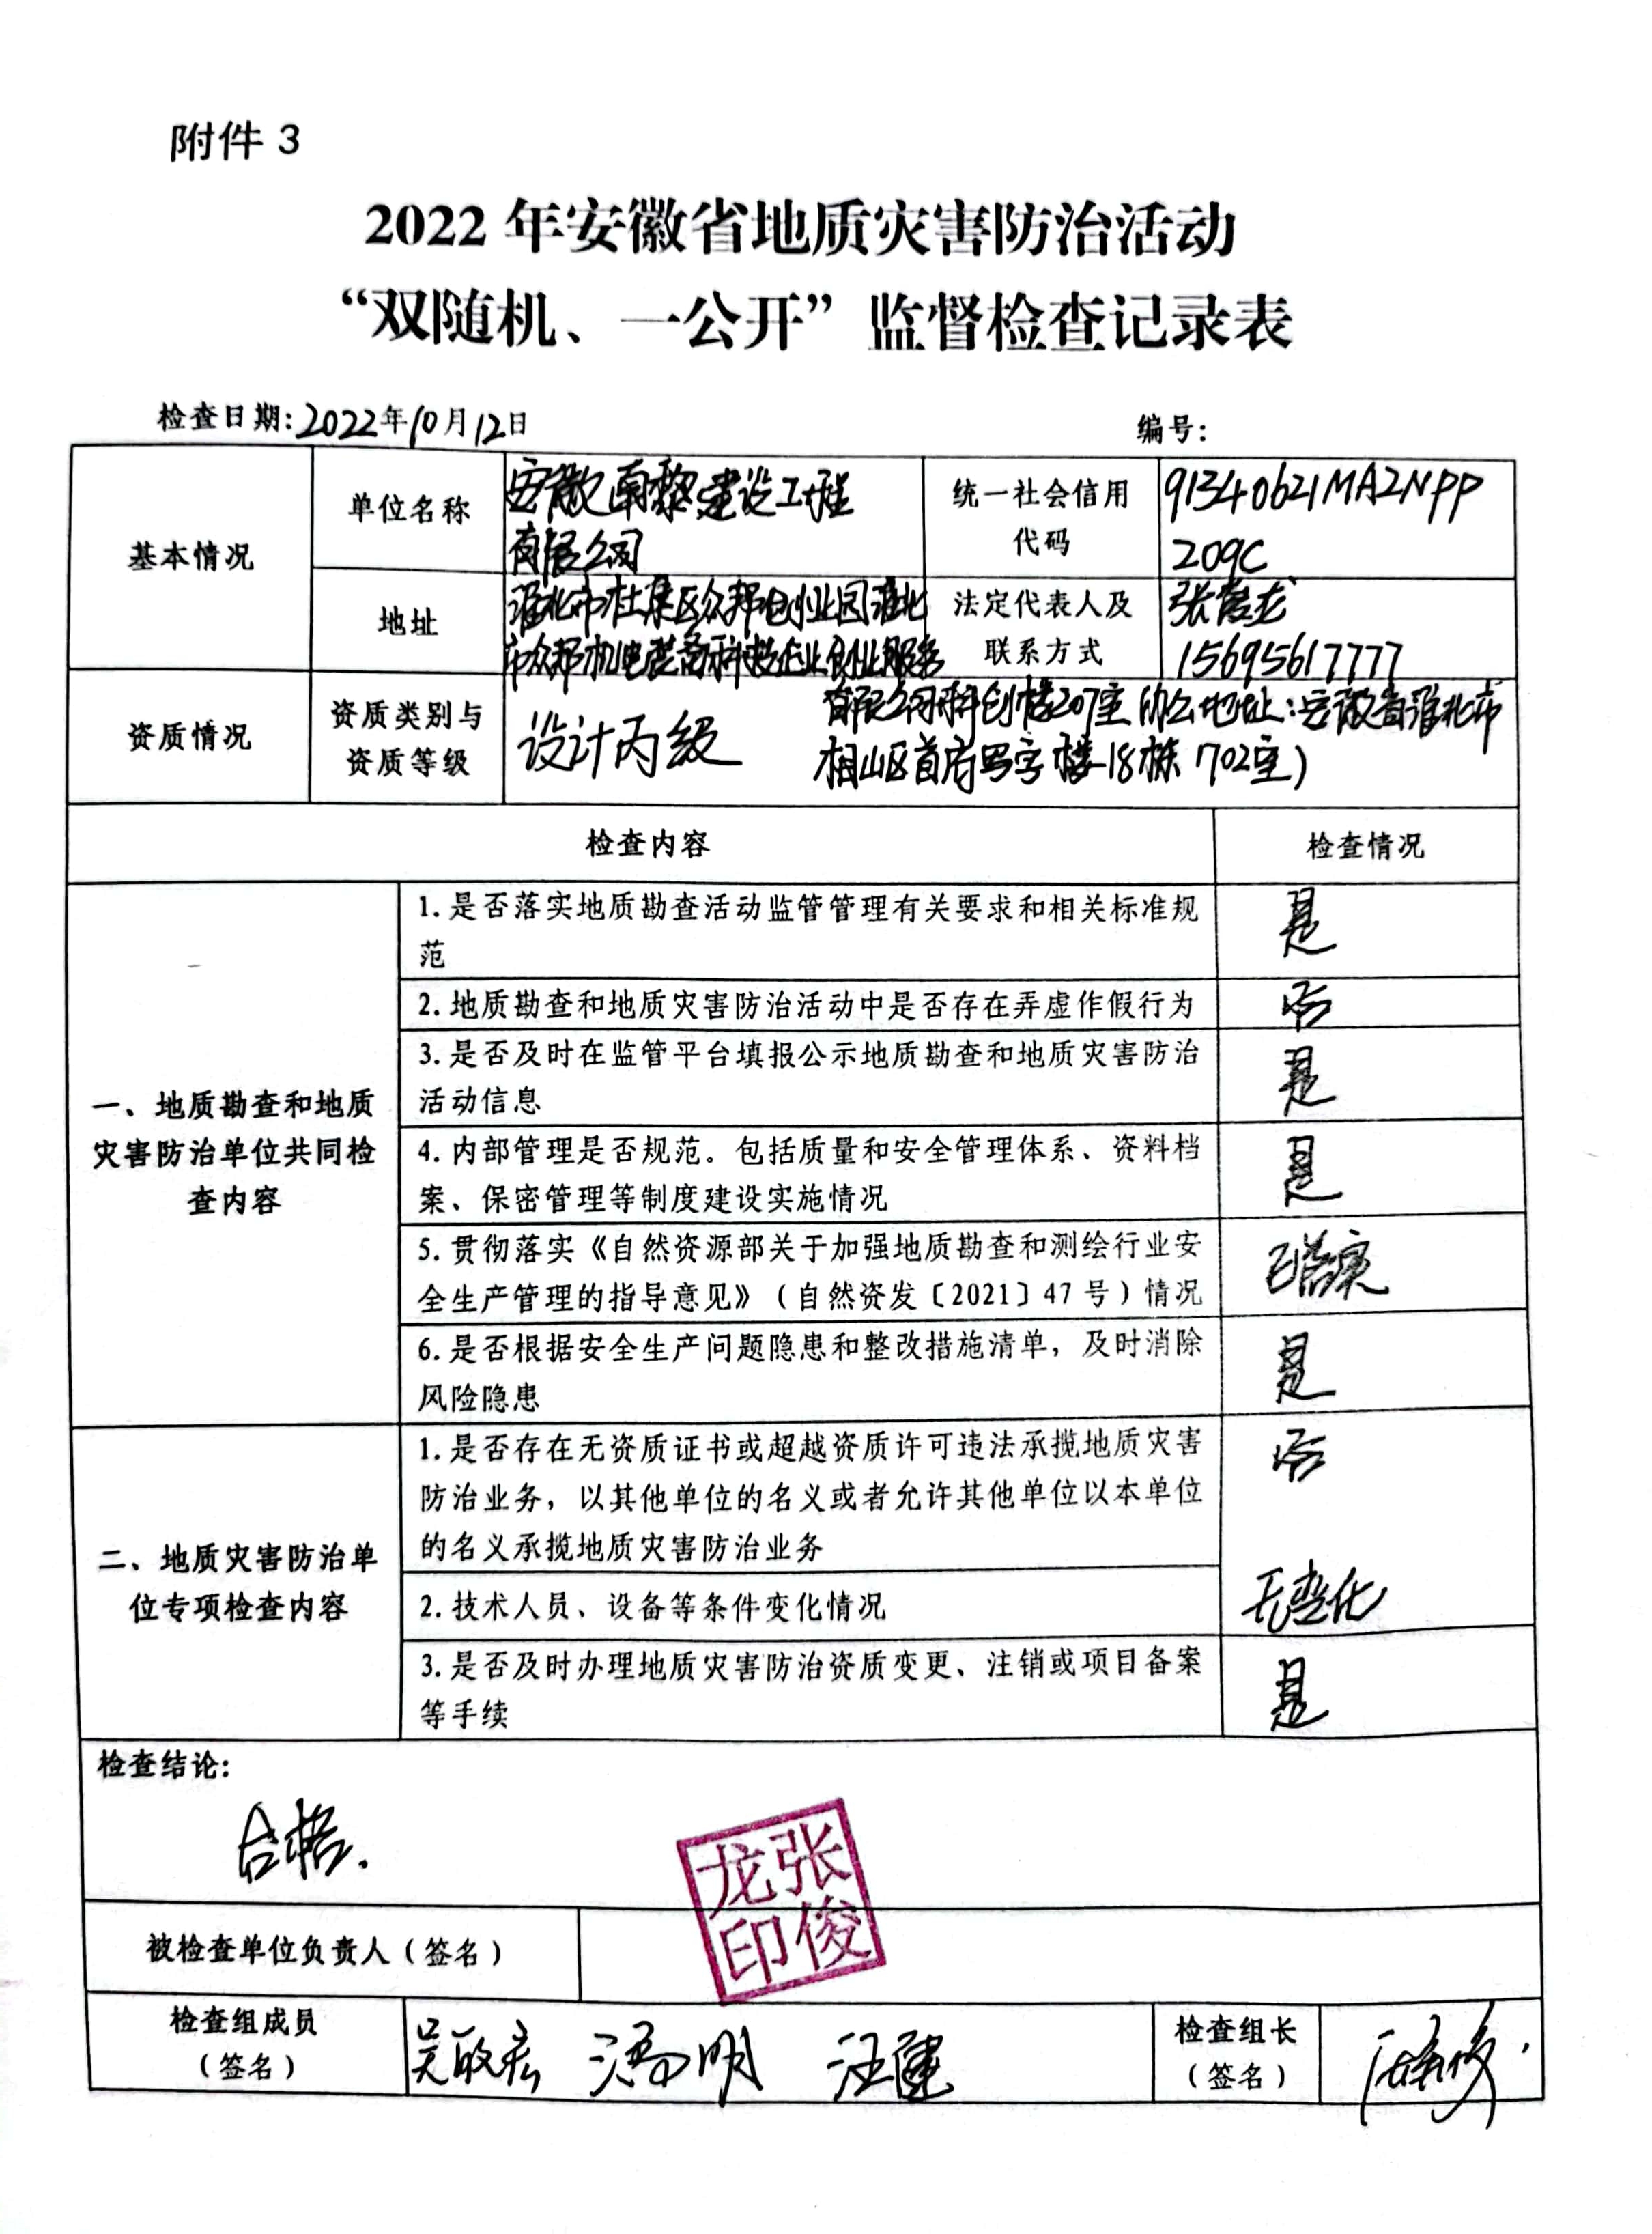 附件 3
2022 年安徽省地质灾害防治活动
“双随机、一公开”监督检查记录表
检查日期:2022年10月12日
编号:
基本情况
单位名称
安徽南黎建设工程
有限公司
统一社会信用
代码
91340621MA2NPP
209C
地址
淮北市杜集区众邦创业园淮北
市众邦机电装备科技企业创业服务
有限公司科创楼207室 办公地址:安徽省淮北市
相山区首府写字楼18栋 702室)
法定代表人及
联系方式
张俊龙
15695617777
资质情况
资质类别与
资质等级
设计丙级
检查内容
检查情况
一、地质勘查和地质
灾害防治单位共同检
查内容
1.是否落实地质勘查活动监管管理有关要求和相关标准规
范
是
2.地质勘查和地质灾害防治活动中是否存在弄虚作假行为
否
3.是否及时在监管平台填报公示地质勘查和地质灾害防治
活动信息
是
4.内部管理是否规范。包括质量和安全管理体系、资料档
案、保密管理等制度建设实施情况
是
5.贯彻落实《自然资源部关于加强地质勘查和测绘行业安
全生产管理的指导意见》（自然资发〔2021〕47 号）情况
已落实
6.是否根据安全生产问题隐患和整改措施清单，及时消除
风险隐患
是
二、地质灾害防治单
位专项检查内容
1.是否存在无资质证书或超越资质许可违法承揽地质灾害
防治业务，以其他单位的名义或者允许其他单位以本单位
的名义承揽地质灾害防治业务
否
2.技术人员、设备等条件变化情况
无变化
3.是否及时办理地质灾害防治资质变更、注销或项目备案
等手续
是
检查结论:
合格.
张俊龙印
被检查单位负责人（签名）
检查组成员
（签名）
汪健
检查组长
（签名）